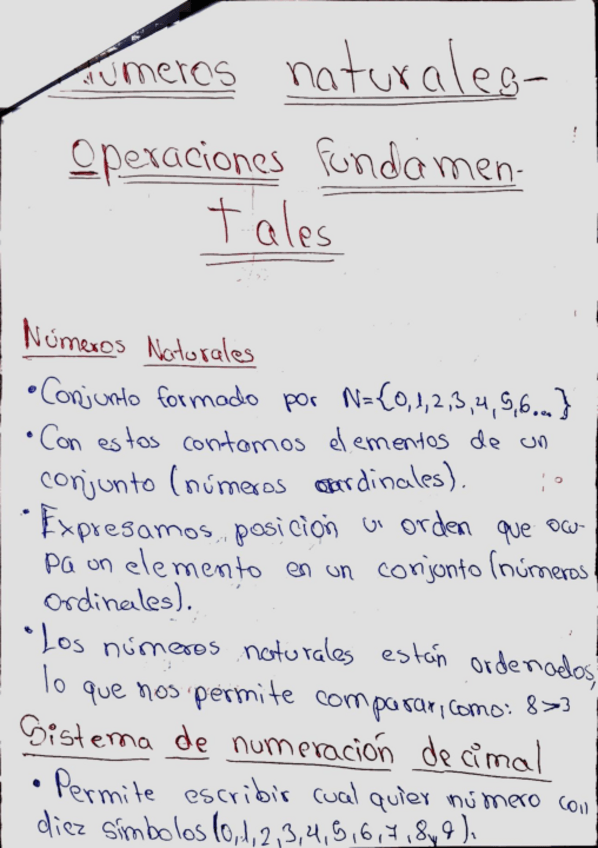 Números naturales-
Operaciones fundamen-
tales
Números Naturales
•Conjunto formado por N={0,1,2,3,4,5,6...}
•Con estos contamos elementos de un
conjunto (números cardinales).
•Expresamos posición u orden que ocu-
pa un elemento en un conjunto (números
ordinales).
•Los números naturales están ordenados,
lo que nos permite comparar, como: 8>3
Sistema de numeración decimal
•Permite escribir cualquier número con
diez símbolos (0,1,2,3,4,5,6,7,8y9).